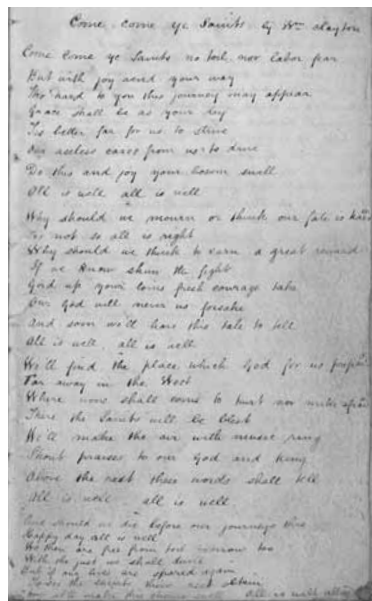 Come come ye Saints by Wm Clayton
Come Come ye Saints no toil nor labor fear
But with joy wend your way
Tho hard to you this journey may appear
Grace shall be as your day
Tis better far for us to strive
Our useless cares from us to drive
Do this and joy your bosom swell
All is well all is well
Why should we mourn or think our lot is hard
Tis not so all is right
Why should we think to earn a great reward
If we now shun the fight
Gird up your loins fresh courage take
Our God will never us forsake
And soon we'll have this tale to tell
All is well all is well
We'll find the place which God for us prepared
Far away in the West
Where none shall come to hurt nor make afraid
There the Saints will be blest
We'll make the air with music ring
Shout praises to our God and king
Above the rest these words shall tell
All is well all is well
And should we die before our journeys thro
Happy day all is well
We then are free from toil sorrow too
With the just we shall dwell
But if our lives are spared again
To see the saints their rest obtain
All is well all is